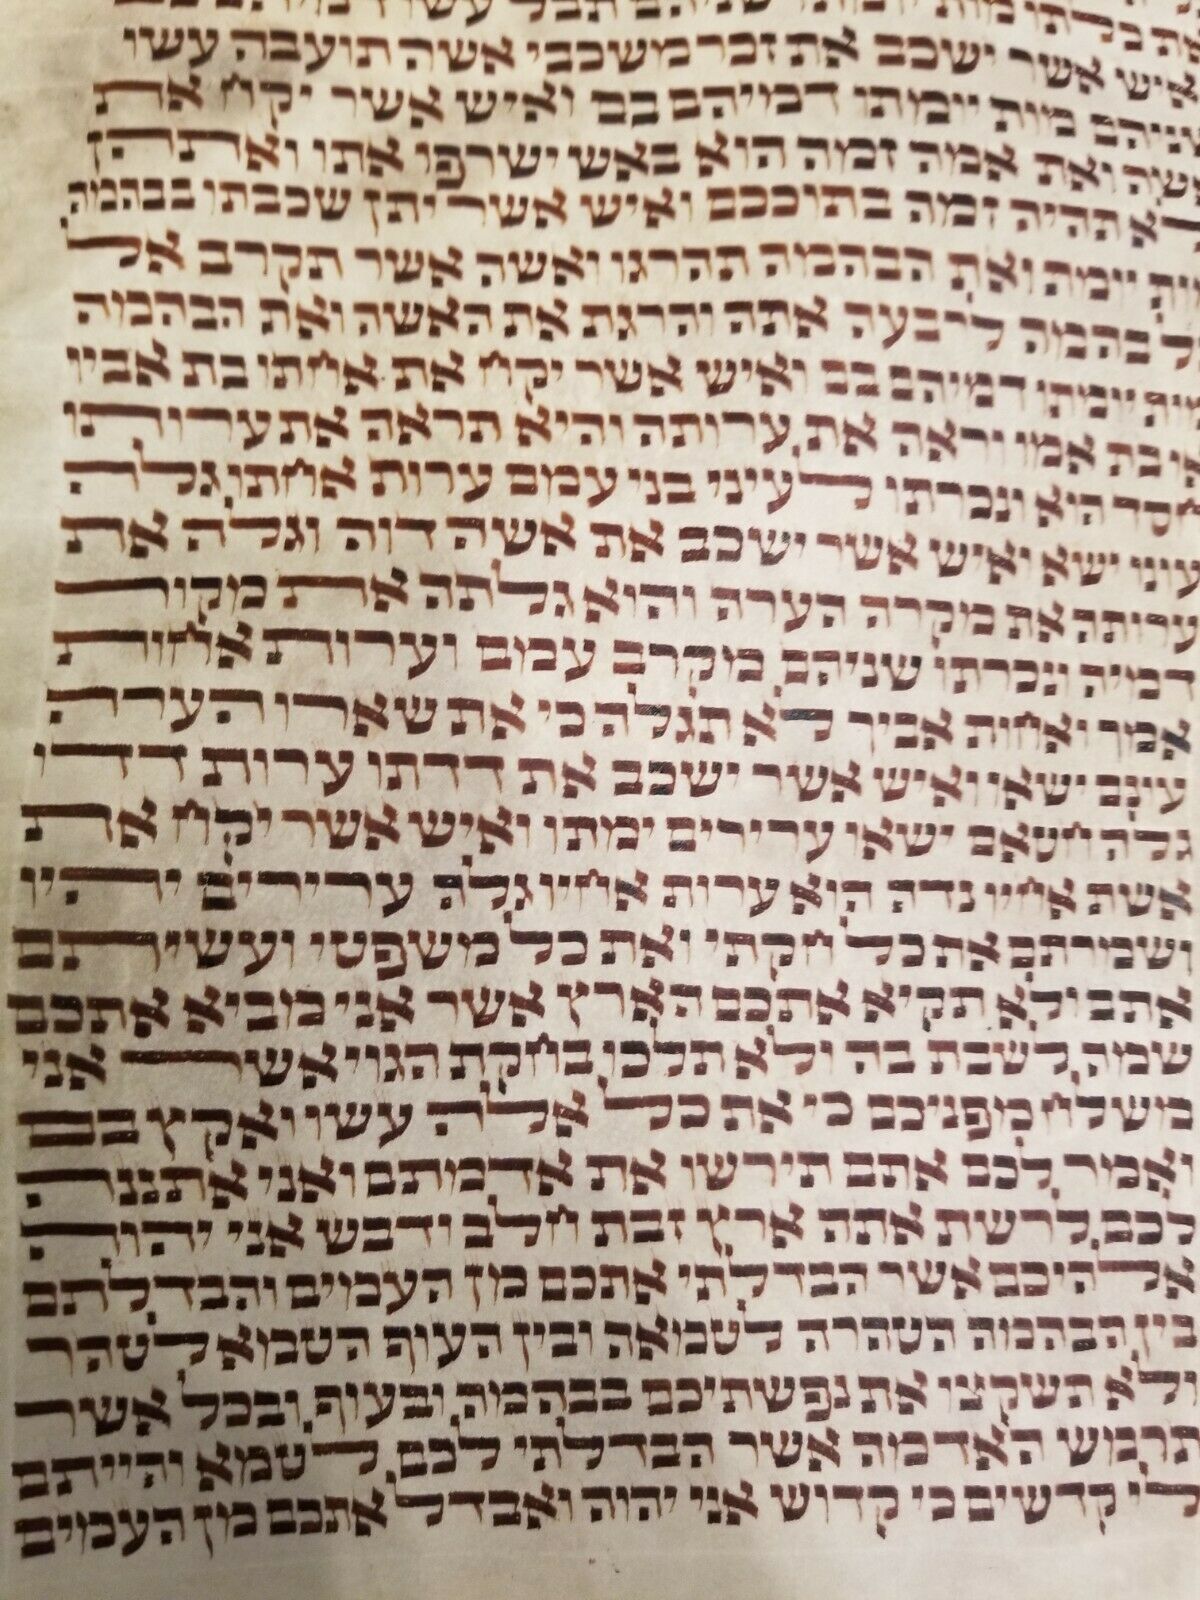 את כלתו מות יומתו שניהם תבל עשו
ואיש אשר ישכב את זכר משכבי אשה תועבה עשו
שניהם מות יומתו דמיהם בם ואיש אשר יקח את
אשה ואת אמה זמה הוא באש ישרפו אתו ואתהן
ולא תהיה זמה בתוככם ואיש אשר יתן שכבתו בבהמה
מות יומת ואת הבהמה תהרגו ואשה אשר תקרב אל
כל בהמה לרבעה אתה והרגת את האשה ואת הבהמה
מות יומתו דמיהם בם ואיש אשר יקח את אחתו בת אביו
או בת אמו וראה את ערותה והיא תראה את ערותו
חסד הוא ונכרתו לעיני בני עמם ערות אחתו גלה
עונו ישא ואיש אשר ישכב את אשה דוה וגלה את
ערותה את מקרה הערה והוא גלתה את מקור
דמיה ונכרתו שניהם מקרב עמם וערות אחות
אמך ואחות אביך לא תגלה כי את שארו הערה
עונם ישאו ואיש אשר ישכב את דדתו ערות דדו
גלה חטאם ישאו ערירים ימתו ואיש אשר יקח את
אשת אחיו נדה הוא ערות אחיו גלה ערירים יהיו
ושמרתם את כל חקתי ואת כל משפטי ועשיתם
אתם ולא תקיא אתכם הארץ אשר אני מביא אתכם
שמה לשבת בה ולא תלכו בחקת הגוי אשר אני
משלח מפניכם כי את כל אלה עשו ואקץ בם
ואמר לכם אתם תירשו את אדמתם ואני אתננה
לכם לרשת אתה ארץ זבת חלב ודבש אני יהוה
אלהיכם אשר הבדלתי אתכם מן העמים והבדלתם
בין הבהמה הטהרה לטמאה ובין העוף הטמא לטהר
ולא תשקצו את נפשתיכם בבהמה ובעוף ובכל אשר
תרמש האדמה אשר הבדלתי לכם לטמא והייתם
לי קדשים כי קדוש אני יהוה ואבדל אתכם מן העמים